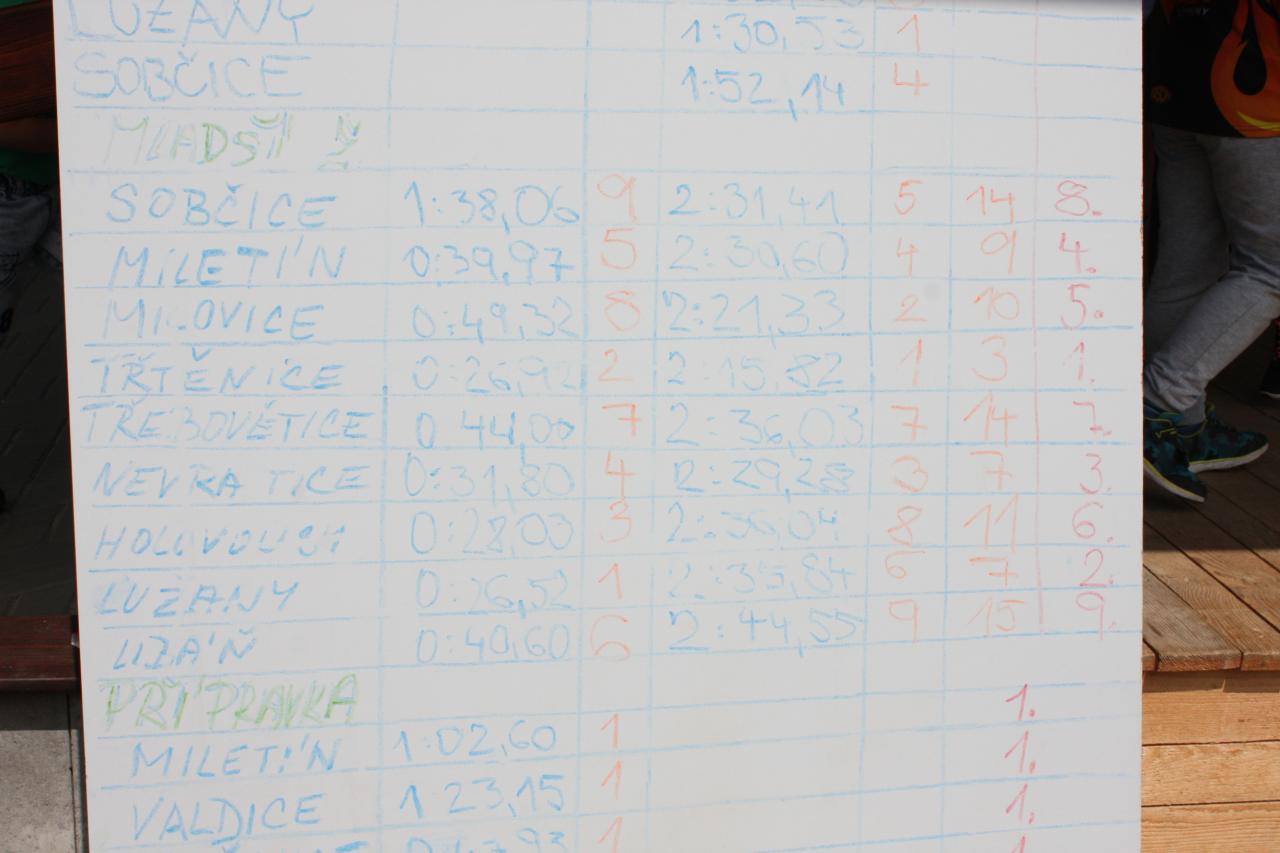 LUŽANY 1:30,53 1
SOBČICE 1:52,14 4
MLADŠÍ Ž
SOBČICE 1:38,06 9 2:31,41 5 14 8.
MILETÍN 0:39,97 5 2:30,60 4 9 4.
MILOVICE 0:49,32 8 2:21,33 2 10 5.
TŘTĚNICE 0:26,92 2 2:15,82 1 3 1.
TŘEBOVĚTICE 0 44,00 7 2:36,03 7 14 7.
NEVRATICE 0:31,80 4 2:29,28 3 7 3.
HOLOVOUSY 0:28,03 3 2:36,04 8 11 6.
LUŽANY 0:26,52 1 2:35,84 6 7 2.
0:40,60 6 2:44,55 9 15 9.
PŘÍPRAVKA 1.
MILETÍN 1:02,60 1 1.
VALDICE 1 23,15 1 1.
1